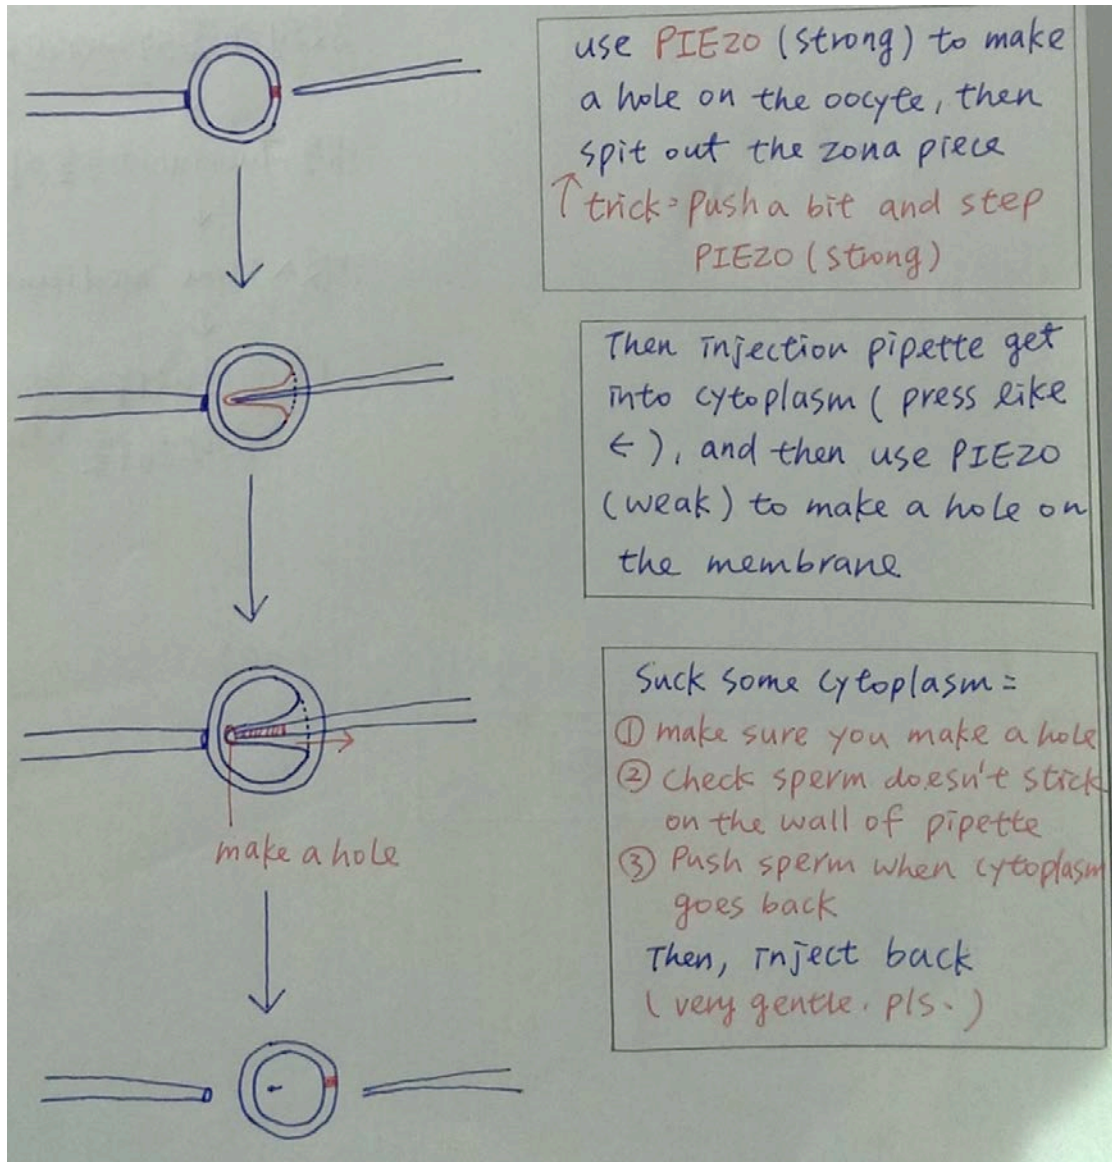 use PIEZO (strong) to make
a hole on the oocyte, then
spit out the zona piece
↑ trick = Push a bit and step
PIEZO (strong)
Then injection pipette get
into cytoplasm ( press like
← ), and then use PIEZO
(weak) to make a hole on
the membrane
Suck some cytoplasm =
① make sure you make a hole
② Check sperm doesn't stick
on the wall of pipette
③ Push sperm when cytoplasm
goes back
Then, inject back
( very gentle. pls. )
make a hole